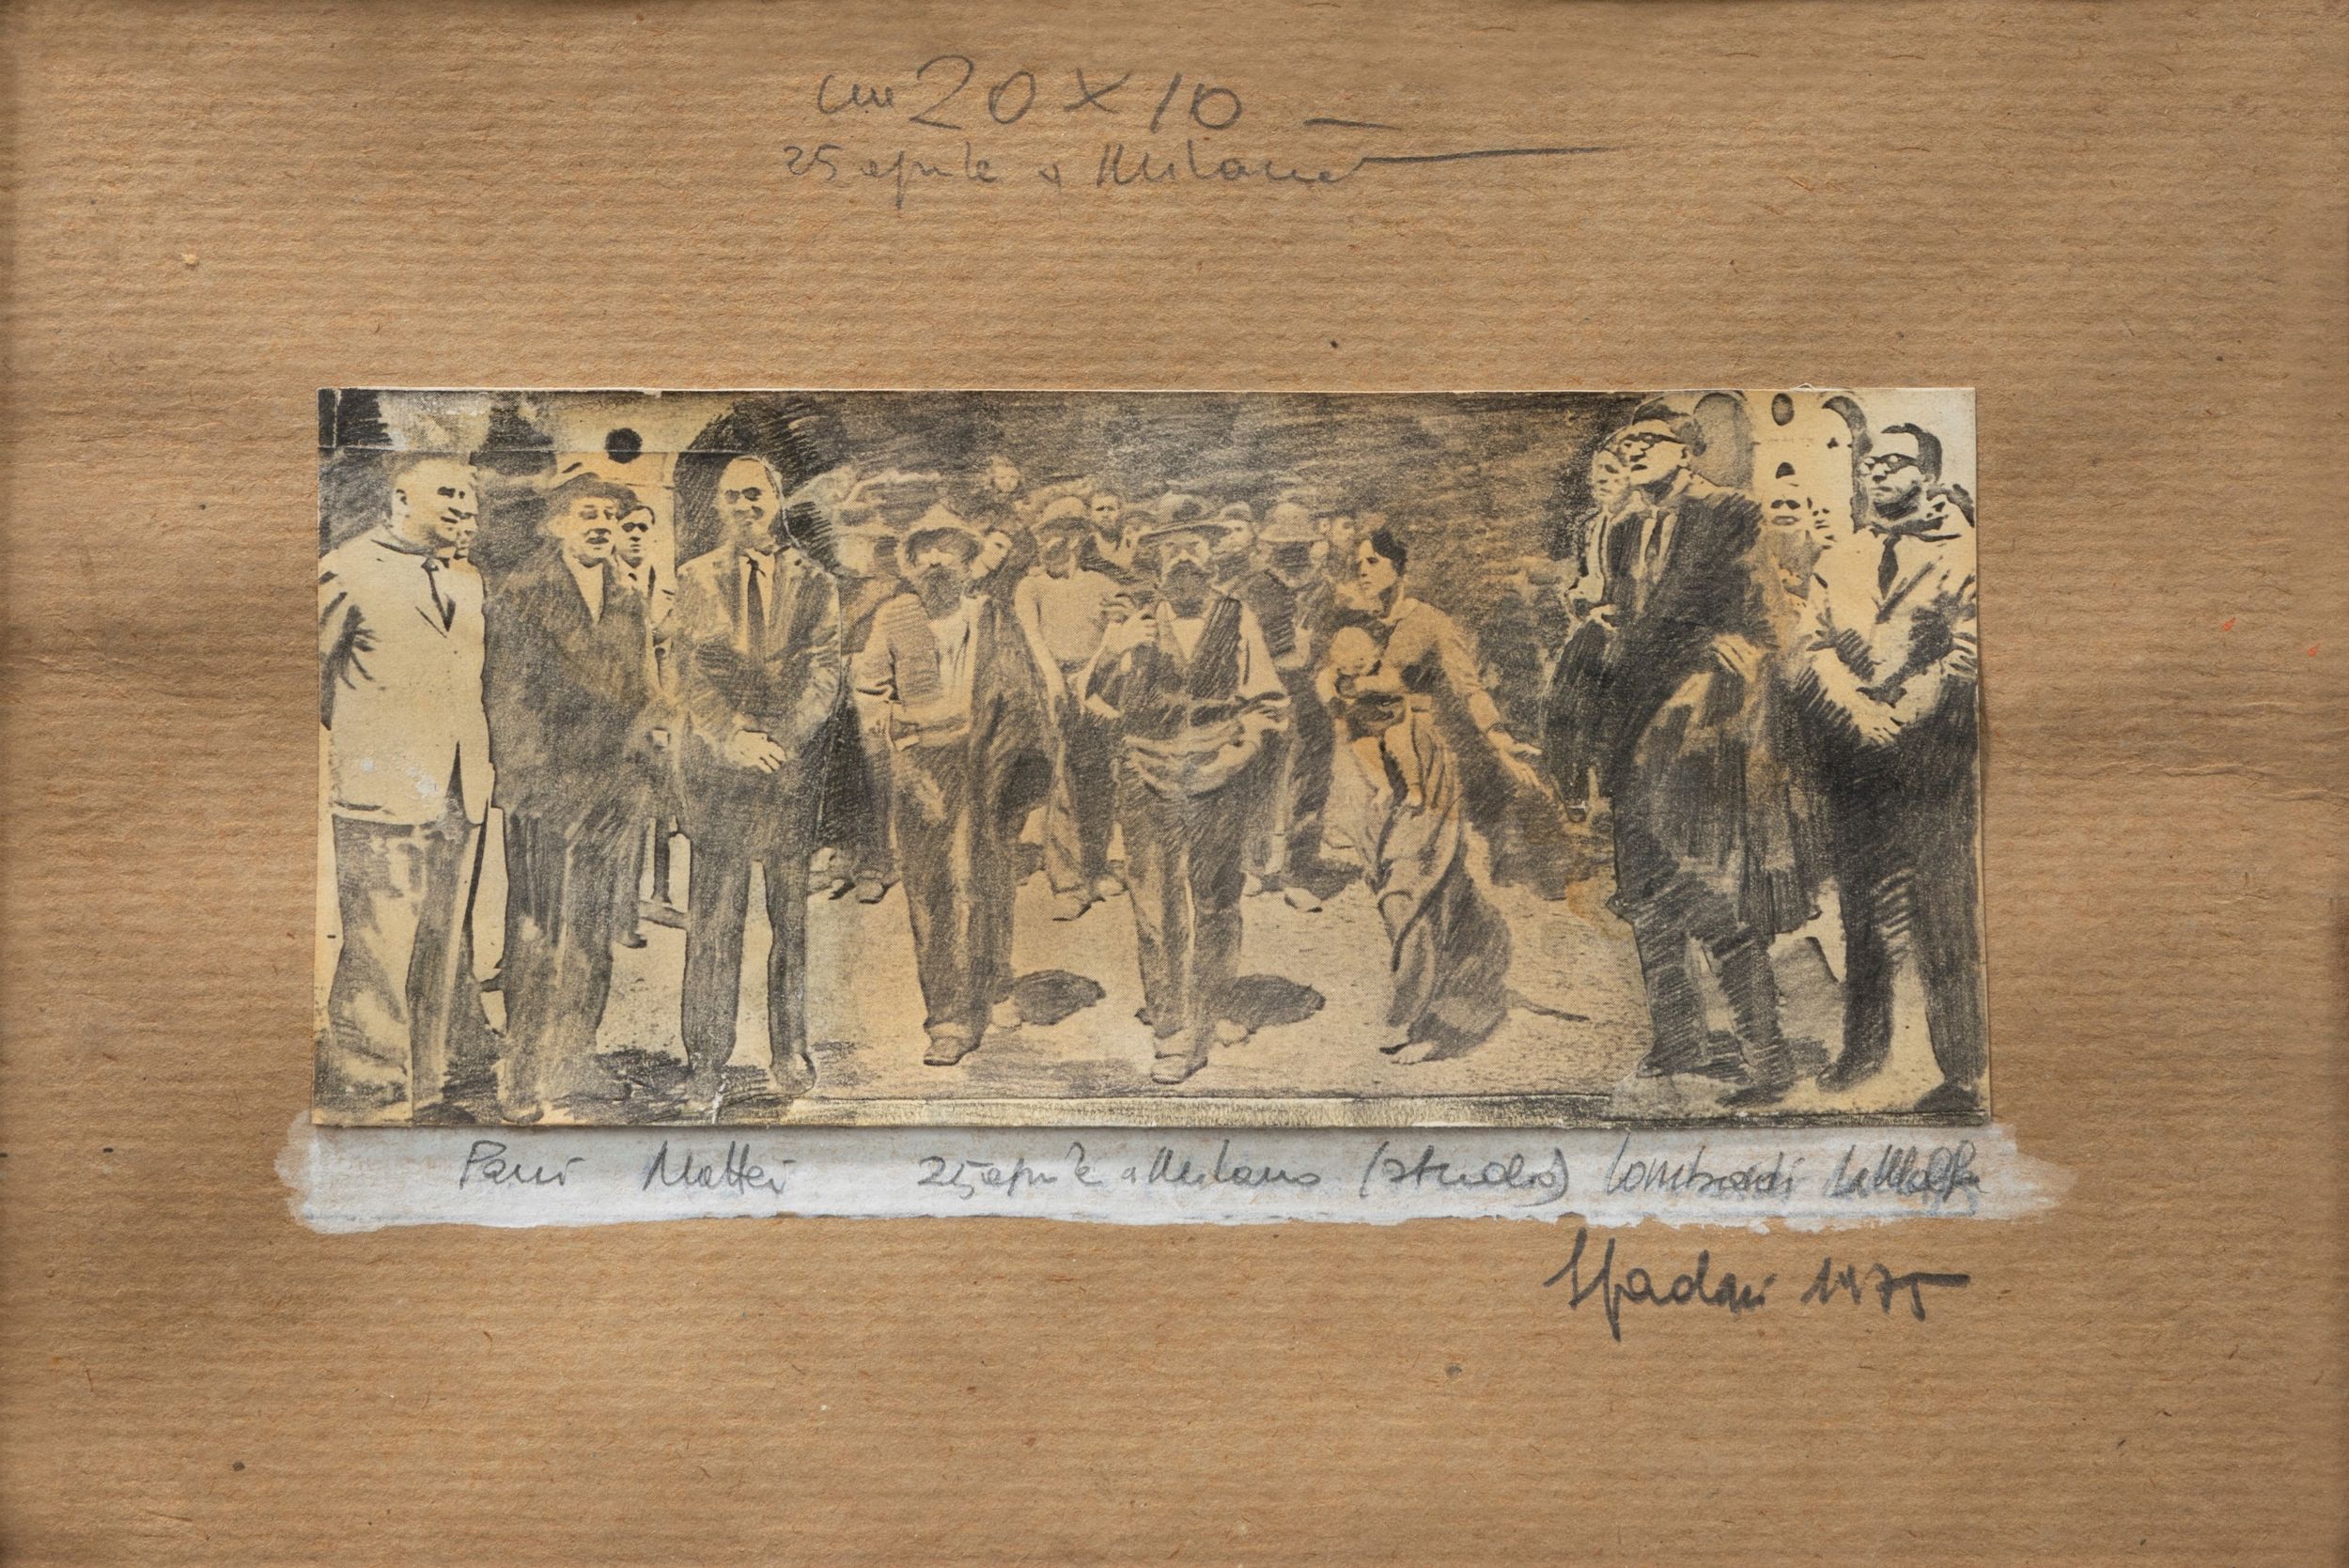 cm 20 X 10
25 aprile a Milano
Parri Mattei 25 aprile a Milano (studio) Lombardi La Malfa
Spadari 1975